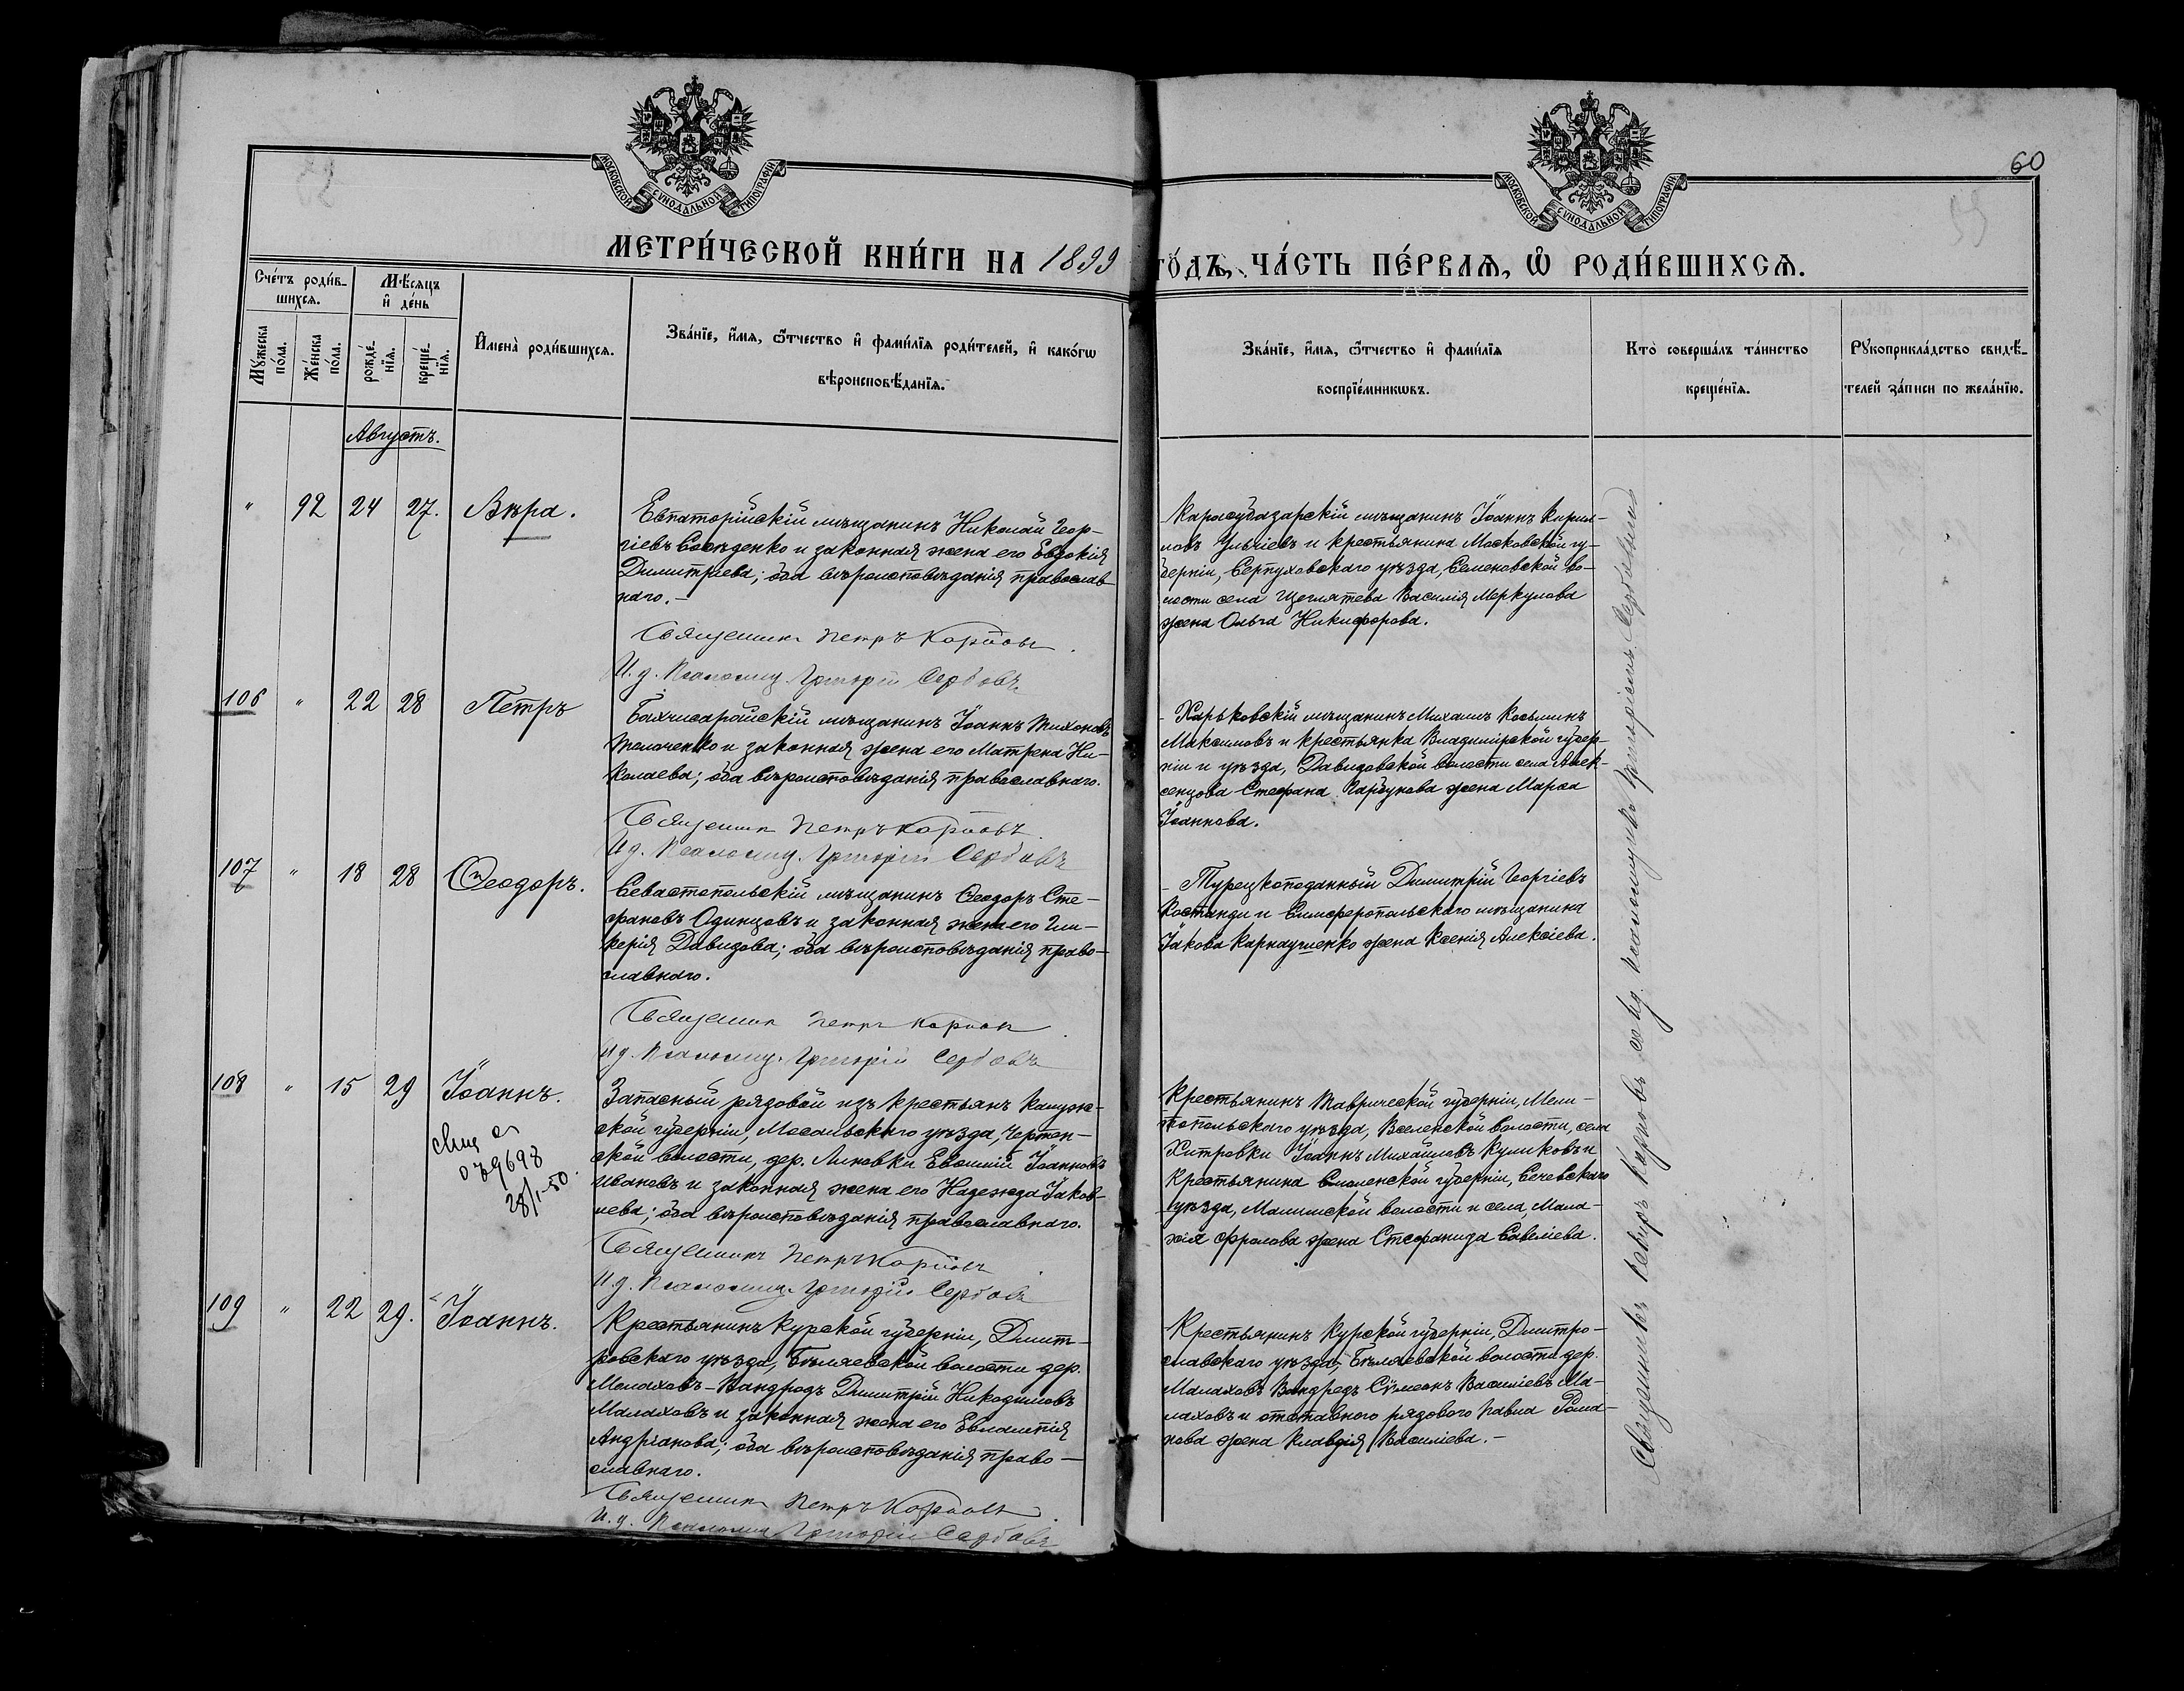 60
МОСКОВСКОЙ СѴНОДАЛЬНОЙ ТИПОГРАФІИ
МОСКОВСКОЙ СѴНОДАЛЬНОЙ ТИПОГРАФІИ
МЕТРИ́ЧЕСКОЙ КНИ́ГИ НА 1899 ГО́ДЪ, ЧА́СТЬ ПЕ́РВАѦ, Ѿ РОДИ́ВШИХСѦ.
Сче́тъ роди́в-
шихсѧ.
Мѣ́сѧцъ
и҆ де́нь
Мꙋ́жеска
по́ла.
Же́нска
по́ла.
рожде́-
нїѧ.
креще́-
нїѧ.
И҆мена̀ роди́вшихсѧ.
Зва́нїе, и҆́мѧ, ѻ҆́тчество и҆ фами́лїѧ роди́телей, и҆ како́гѡ
вѣроисповѣ́данїѧ.
Зва́нїе, и҆́мѧ, ѻ҆́тчество и҆ фами́лїѧ
воспрїе́мникѡвъ.
Кто̀ соверша́лъ та́инство
креще́нїѧ.
Рꙋкоприкла́дство свидѣ́-
телей за́писи по жела́нїю.
Августъ.
" 92 24 27. Вѣра.
Евпаторійскій мѣщанинъ Николай Геор-
гіевъ и законная жена его Евдокія
Димитріева; оба вѣроисповѣданія православ-
наго. –
Священникъ Петръ Карповъ.
И. д. Псаломщ. Григорій Сербовъ
Карасубазарскій мѣщанинъ Іоаннъ Кирил-
ловъ и крестьянина Московской гу-
берніи, Серпуховскаго уѣзда, Семеновской во-
лости села Щеглятева Василія Меркулова
жена Ольга Никифорова.
106 " 22 28 Петръ
Бахчисарайскій мѣщанинъ Іоаннъ Тихоновъ
Телоченко и законная жена его Матрена Ни-
колаева; оба вѣроисповѣданія православнаго.
Священникъ Петръ Карповъ.
И д. Псаломщ. Григорій Сербовъ
Харьковскій мѣщанинъ Михаилъ Косьминъ
Максимовъ и крестьянка Владимірской губер-
ніи и уѣзда, Давыдовской волости села Алек-
сенцова Стефана Гарбунова жена Марѳа
Іоаннова.
107 " 18 28 Ѳеодоръ.
Севастопольскій мѣщанинъ Ѳеодоръ Сте-
фановъ Одинцовъ и законная жена его Гли-
керія Давидова; оба вѣроисповѣданія право-
славнаго.
Священникъ Петръ Карповъ.
И д. Псаломщ. Григорій Сербовъ
Турецкоподанный Димитрій Георгіевъ
Костанди и Симферопольскаго мѣщанина
Іакова Карнаушенко жена Ксенія Алексіева.
108 " 15 29 Іоаннъ.
079698
28/I-50.
Запасный рядовой изъ крестьянъ Калуж-
ской губерніи, Мосальскаго уѣзда, Чертен-
ской волости, дер. Линовки Евѳимій Іоанновъ
Ивановъ и законная жена его Надежда Іаков-
лева; оба вѣроисповѣданія православнаго.
Священникъ Петръ Карповъ.
И д. Псаломщ. Григорій Сербовъ
Крестьянинъ Таврической губерніи, Мели-
топольскаго уѣзда, волости, села
Хитровки Іоаннъ Михайловъ Куликовъ и
Крестьянина Смоленской губерніи, Сечевскаго
уѣзда, Малишской волости и села, Мала-
хія Фролова жена Стефанида Савеліева.
109 " 22 29. Іоаннъ.
Крестьянинъ Курской губерніи, Дмит-
ровскаго уѣзда, Бѣляевской волости дер.
Малаховъ- Димитрій Никодимовъ
Малаховъ и законная жена его Евлампія
Андріанова; оба вѣроисповѣданія право-
славнаго.
Священникъ Петръ Карповъ.
И. д. Псаломщ Григорій Сербовъ
Крестьянинъ Курской губерніи, Дмитро-
славскаго уѣзда, Бѣляевской волости дер.
Малаховъ Сѵмеонъ Василіевъ Ма-
лаховъ и отставного рядового Павла Рома-
нова жена Клавдія Василіева. –
Священникъ Петръ Карповъ со и д. псаломщикъ Григоріемъ Сербовымъ